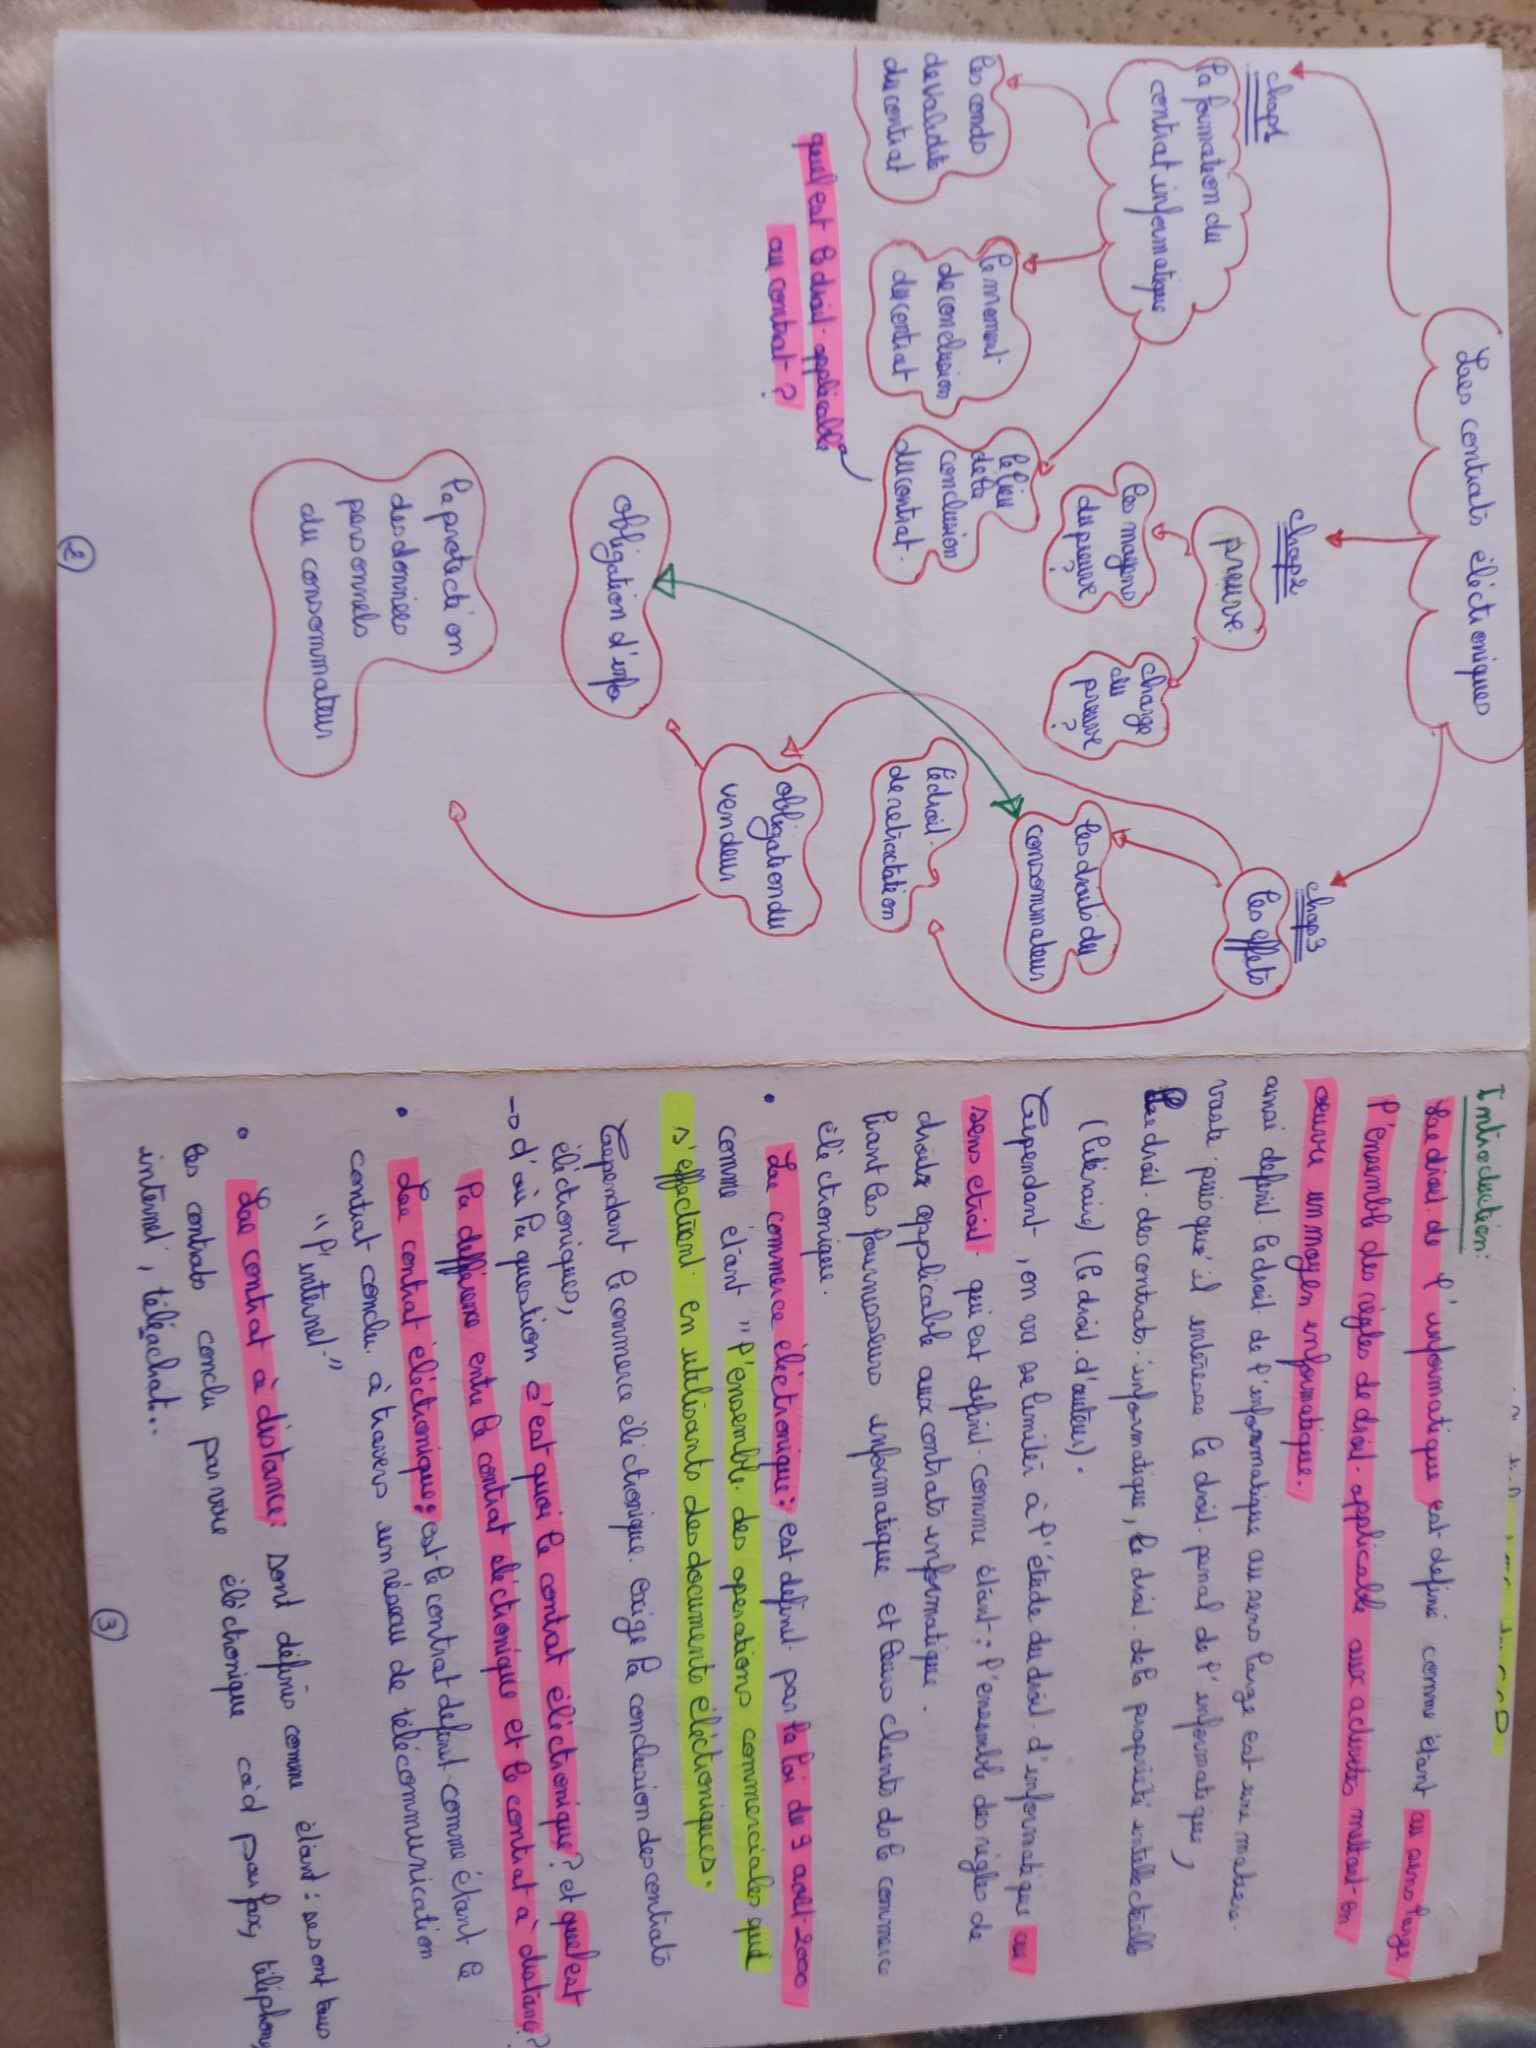 Les contrats éléctroniques
chap1
La formation du
contrat informatique
les conds
de validité
du contrat
le moment
de conclusion
du contrat
le lieu
de la
conclusion
du contrat.
quel est le droit applicable
au contrat ?
chap2
preuve
les moyens
du preuve
?
charge
du
preuve
?
chap3
les effets
les droits du
consommateur
le droit
de retractation
obligation du
vendeur
obligation d'info
la protecti on
des données
personnels
du consommateur
2
Introduction:
Le droit de l'informatique est définie comme étant au sens large
l'ensemble des règles de droit applicable aux activités mettant en
œuvre un moyen informatique.
ainsi definit le droit de l'informatique au sens large est une matière
vaste puisqu'il intéresse le droit penal de l'informatique,
Le droit des contrats informatique, le droit de la propriété intellectuelle
(litéraire) (le droit d'auteur).
Cependant, on va se limiter à l'étude du droit d'informatique au
sens etroit qui est définit comme étant : l'ensemble des règles de
droits applicable aux contrats informatique.
liant les fournisseurs informatique et leurs clients ds le commerce
éléctronique.
• Le commerce éléctronique: est définit par la loi du 9 août 2000
comme étant "l'ensemble des operations commerciales qui
s'effectient en utilisants des documents éléctroniques.
Cependant le commerce éléctronique exige la conclusion des contrats
éléctroniques,
→ d'où la question c'est quoi le contrat éléctronique? et quel est
la différence entre le contrat éléctronique et le contrat à distance?
• Le contrat éléctronique: est le contrat definit comme étant le
contrat conclu à travers un réseau de télécommunication
"l'internet."
• Le contrat à distance: sont définis comme étant : se sont tous
les contrats conclu par voie éléctronique càd par fax, téléphone,
internet, téléachat...
3